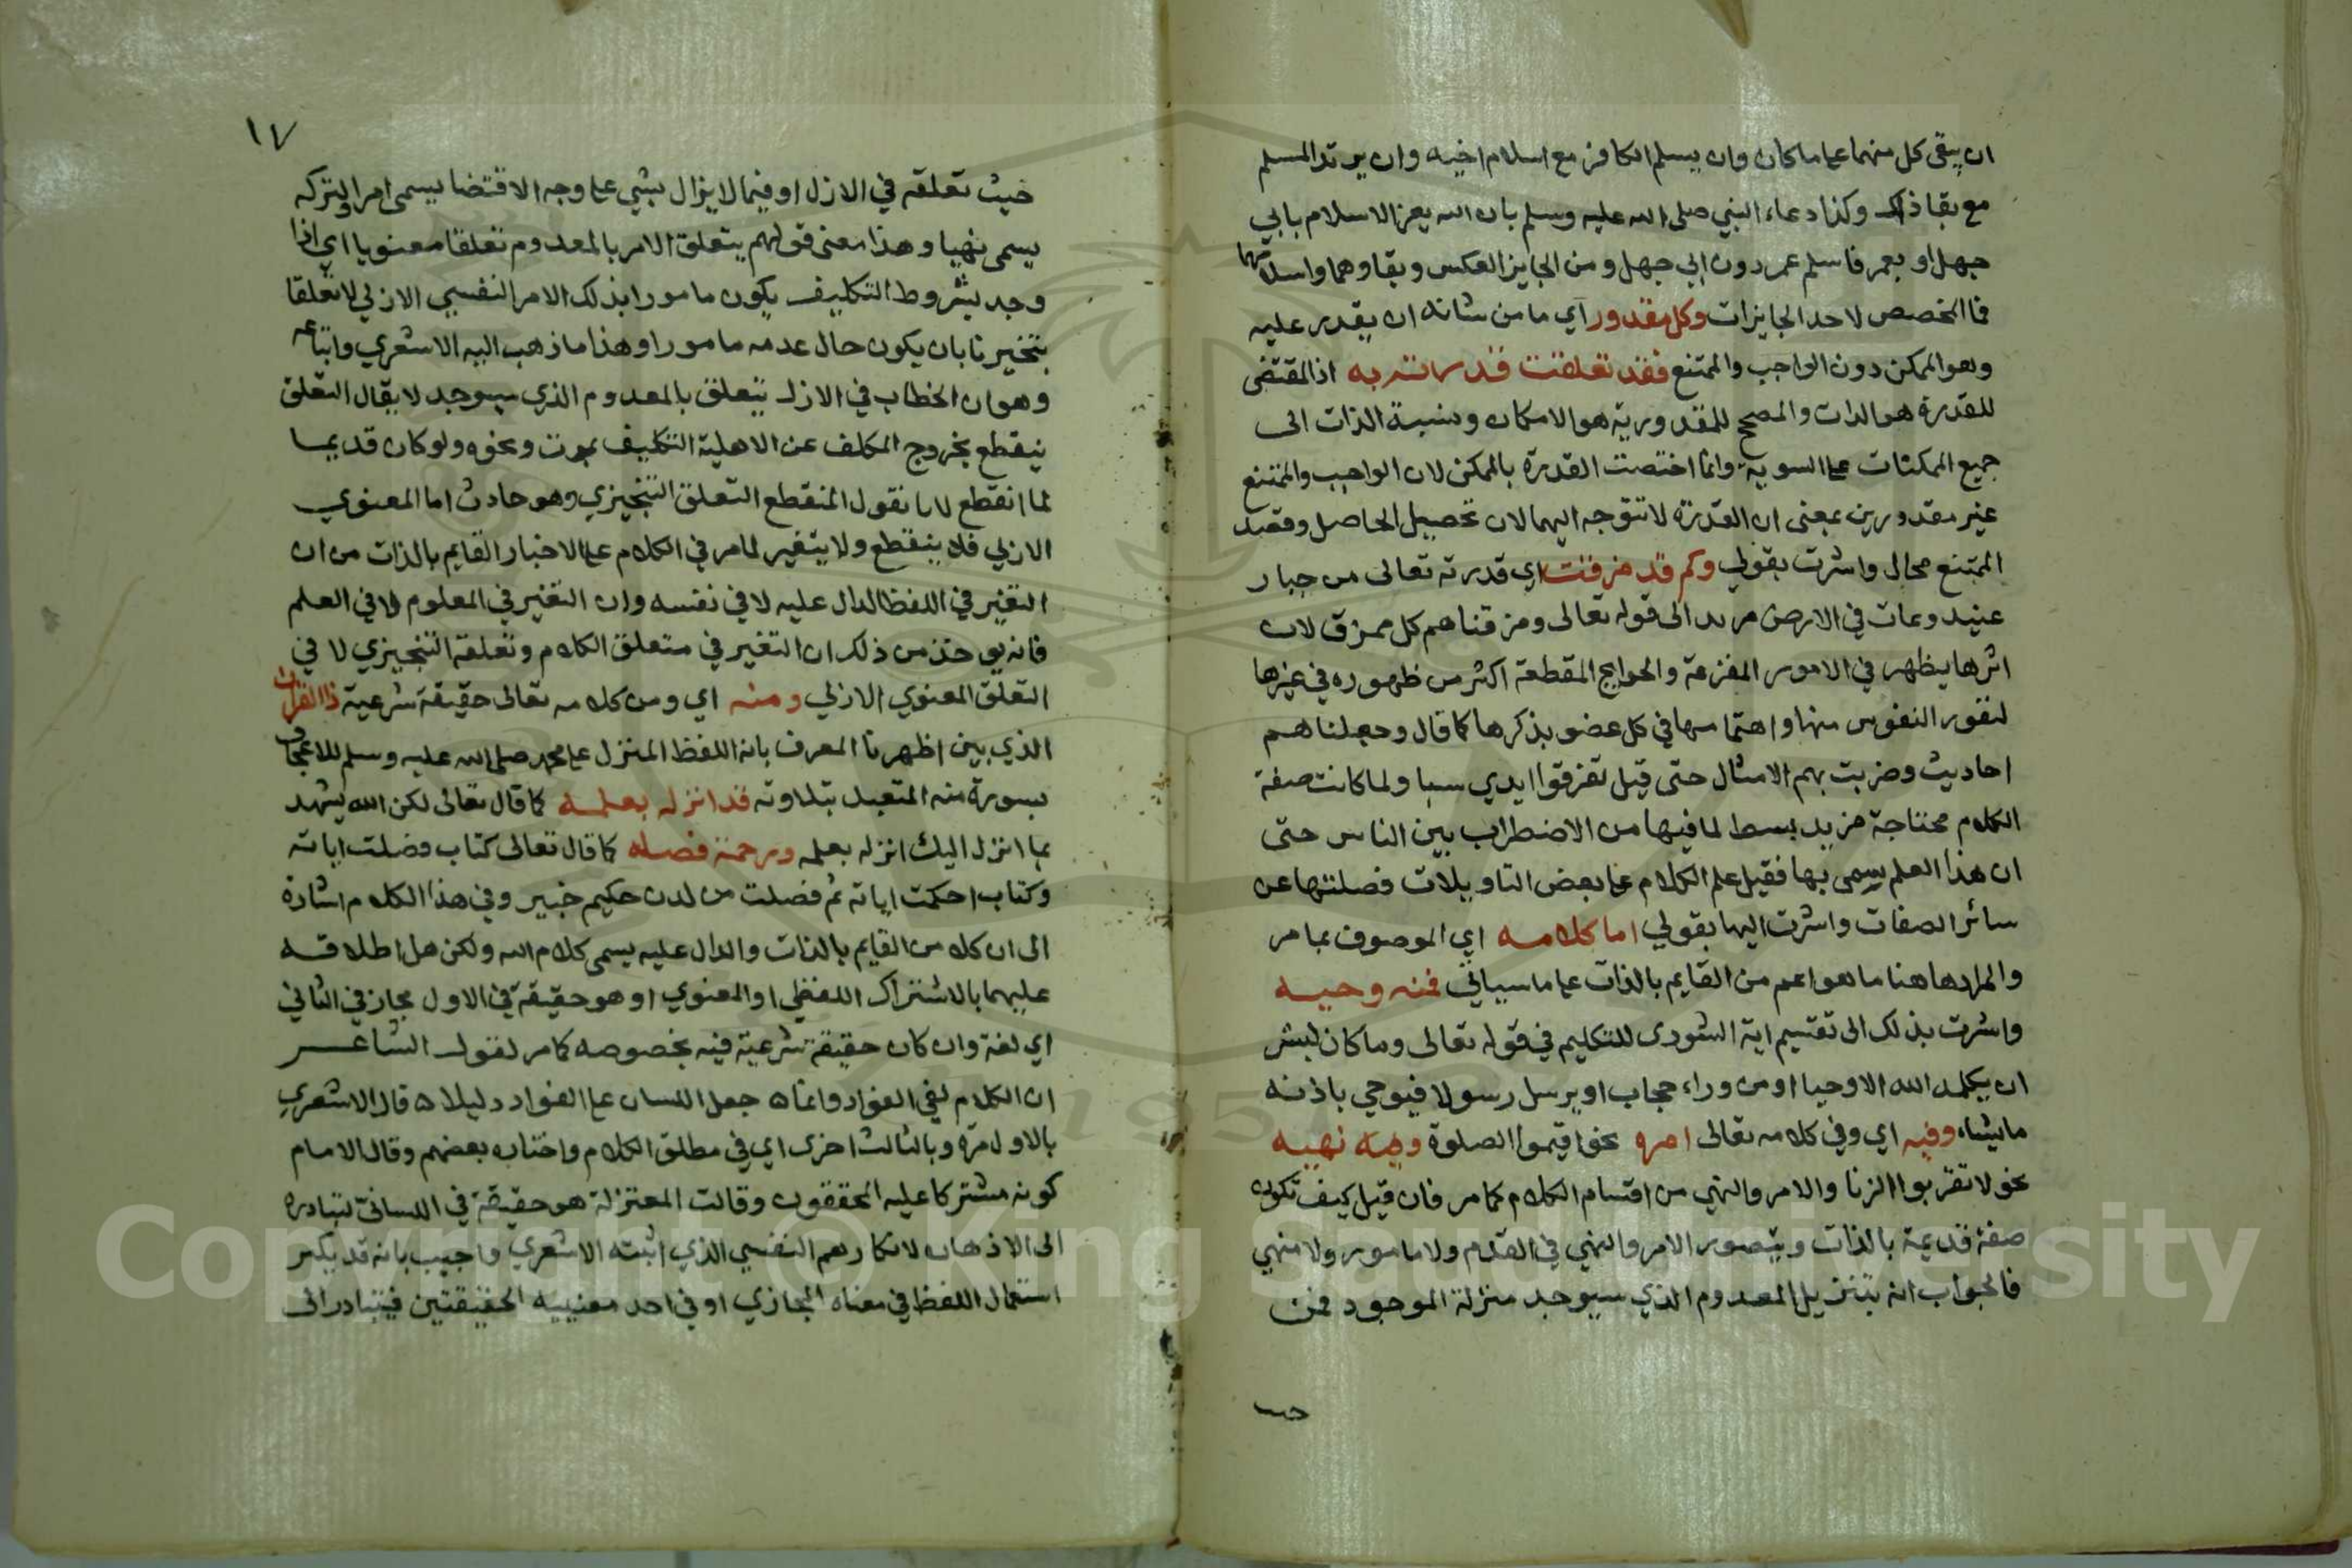 ان يبقى كل منهما على ما كان وان يسلم الكافر مع اسلام اخيه وان يرتد المسلم
مع بقا ذاك وكذا دعاء النبي صلى الله عليه وسلم بان الله يعز الاسلام بابي
جهل او بعمر فاسلم عمر دون ابي جهل ومن الجايز العكس وبقاوهما واسلامهما
فما المخصص لاحد الجايزات وكل مقدور اي ما من شانه ان يقدر عليه
وهو الممكن دون الواجب والممتنع فقد تعلقت قدرته به اذ المقتضى
للقدرة هو الذات والمصحح للمقدورية هو الامكان ونسبة الذات الى
جميع الممكنات على السوية وانما اختصت القدرة بالممكن لان الواجب والممتنع
غير مقدورين بمعنى ان القدرة لا تتوجه اليهما لان تحصيل الحاصل وقصد
الممتنع محال واشرت بقولي وكم قد مزقت اي قدرته تعالى من جبار
عنيد وعات في الارض مريد الى قوله تعالى ومزقناهم كل ممزق لان
اثرها يظهر في الامور المفزعة والحوايج المقطعة اكثر من ظهوره في غيرها
لنفور النفوس منها واهتمامها في كل عضو بذكرها كما قال وجعلناهم
احاديث وضربت بهم الامثال حتى قيل تفرقوا ايدي سبا ولما كانت صفة
الكلام محتاجة مزيد بسط لما فيها من الاضطراب بين الناس حتى
ان هذا العلم سمي بها فقيل علم الكلام على بعض التاويلات فصلتها عن
سائر الصفات واشرت اليها بقولي اما كلامه اي الموصوف بما مر
والمراد هاهنا ما هو اعم من القايم بالذات على ما سياتي فمنه وحيه
واشرت بذلك الى تقسيم اية الشورى للتكليم في قوله تعالى وما كان لبشر
ان يكلمه الله الا وحيا او من وراء حجاب او يرسل رسولا فيوحي باذنه
ما يشاء وفيه اي وفي كلامه تعالى امره نحو اقيموا الصلوة وفيه نهيه
نحو لا تقربوا الزنا والامر والنهي من اقسام الكلام كما مر فان قيل كيف تكون
صفة قديمة بالذات ويتصور الامر والنهي في القدم ولا مامور ولا منهي
فالجواب انه بتنزيل المعدوم الذي سيوجد منزلة الموجود فمن
حيث
١٧
حيث تعلقه في الازل او فيما لا يزال بشي على وجه الاقتضا يسمى امرا ولتركه
يسمى نهيا وهذا معنى قولهم يتعلق الامر بالمعدوم تعلقا معنويا اي اذا
وجد بشروط التكليف يكون مامورا بذلك الامر النفسي الازلي لا تعلقا
تنجيزيا بان يكون حال عدمه مامورا وهذا ما ذهب اليه الاشعري واتباعه
وهو ان الخطاب في الازل يتعلق بالمعدوم الذي سيوجد لا يقال التعلق
ينقطع بخروج المكلف عن الاهلية التكليف بموت ونحوه ولو كان قديما
لما انقطع لانا نقول المنقطع التعلق التنجيزي وهو حادث اما المعنوي
الازلي فلا ينقطع ولا يتغير لما مر في الكلام على الاخبار القايم بالذات من ان
التغير في اللفظ الدال عليه لا في نفسه وان التغير في المعلوم لا في العلم
فانه يوخذ من ذلك ان التغير في متعلق الكلام وتعلقه التنجيزي لا في
التعلق المعنوي الازلي ومنه اي ومن كلامه تعالى حقيقة شرعية ذا القران
الذي بين اظهرنا المعرف بانه اللفظ المنزل على محمد صلى الله عليه وسلم للاعجاز
بسورة منه المتعبد بتلاوته قد انزله بعلمه كما قال تعالى لكن الله يشهد
بما انزل اليك انزله بعلمه ورحمة فصله كما قال تعالى كتاب فصلت اياته
وكتاب احكمت اياته ثم فصلت من لدن حكيم خبير وفي هذا الكلام اشارة
الى ان كلا من القايم بالذات والدال عليه يسمى كلام الله ولكن هل اطلاقه
عليهما بالاشتراك اللفظي او المعنوي او هو حقيقة في الاول مجاز في الثاني
اي لغة وان كان حقيقة شرعية فيه بخصوصه كما مر لقول الشاعر
ان الكلام لفي الفواد وانما ه جعل اللسان على الفواد دليلا ه قال الاشعري
بالاول مرة وبالثالث اخرى اي في مطلق الكلام واختاره بعضهم وقال الامام
كونه مشتركا عليه المحققون وقالت المعتزلة هو حقيقة في اللساني لتبادره
الى الاذهان لانكارهم النفسي الذي اثبته الاشعري واجيب بانه قد يكثر
استعمال اللفظ في معناه المجازي او في احد معنييه الحقيقتين فيتبادر الى
Copyright © King Saud University
1957